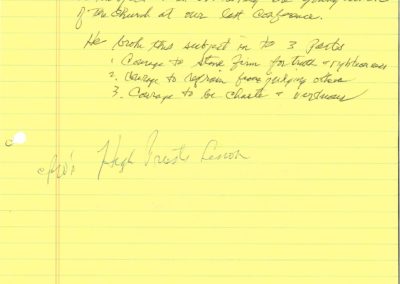 of the Church at our last Conference.
He broke this subject in to 3 parts
1. Courage to stand firm for truth & righteousness
2. Courage to refrain from judging others
3. Courage to be chaste & virtuous
High Priest Lesson